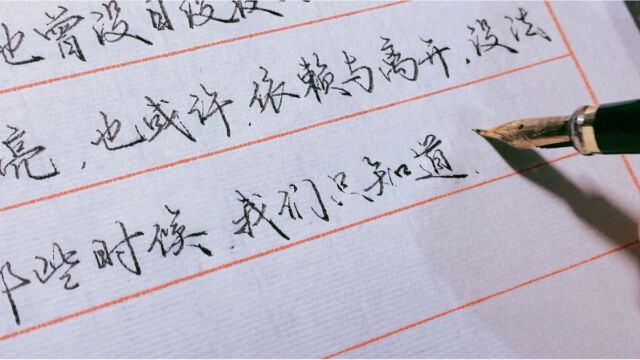 也曾没日没夜
亮，也或许，依赖与离开，没法
那些时候，我们只知道，